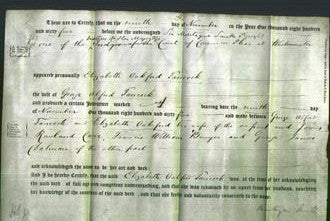 These are to Certify, that on the ninth day of November in the Year One thousand eight hundred
and sixty five before me the undersigned Sir Montague Smith Knight
one of the Judges of the Court of Common Pleas at Westminster
appeared personally Elizabeth Oakford Tancock
the wife of George Alford Tancock
and produced a certain Indenture marked bearing date the ninth day
of November One thousand eight hundred and sixty five and made between George Alford
Tancock and Elizabeth Oakford his wife of the one part and James
Rowland William and George James
of the other part
and acknowledged the same to be her act and deed:
And I do hereby Certify, that the said Elizabeth Oakford Tancock was, at the time of her acknowledging
the said deed of full age and competent understanding, and that she was examined by me apart from her husband, touching
her knowledge of the contents of the said deed and that she freely and voluntarily consented to the same.